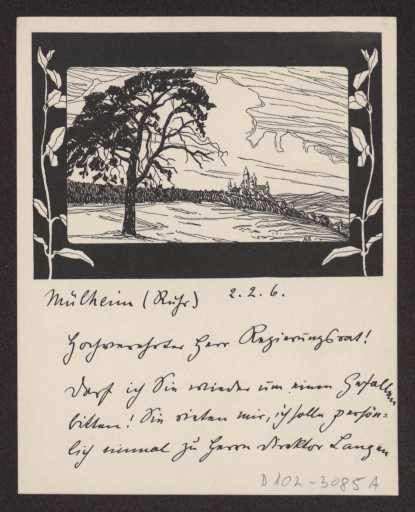 Mülheim (Ruhr) 2.2.6.
Hochverehrter Herr Regierungsrat!
Darf ich Sie wieder um einen Gefallen
bitten! Sie rieten mir, ich solle persön-
lich einmal zu Herrn Direktor Langen
D 102-3085 A